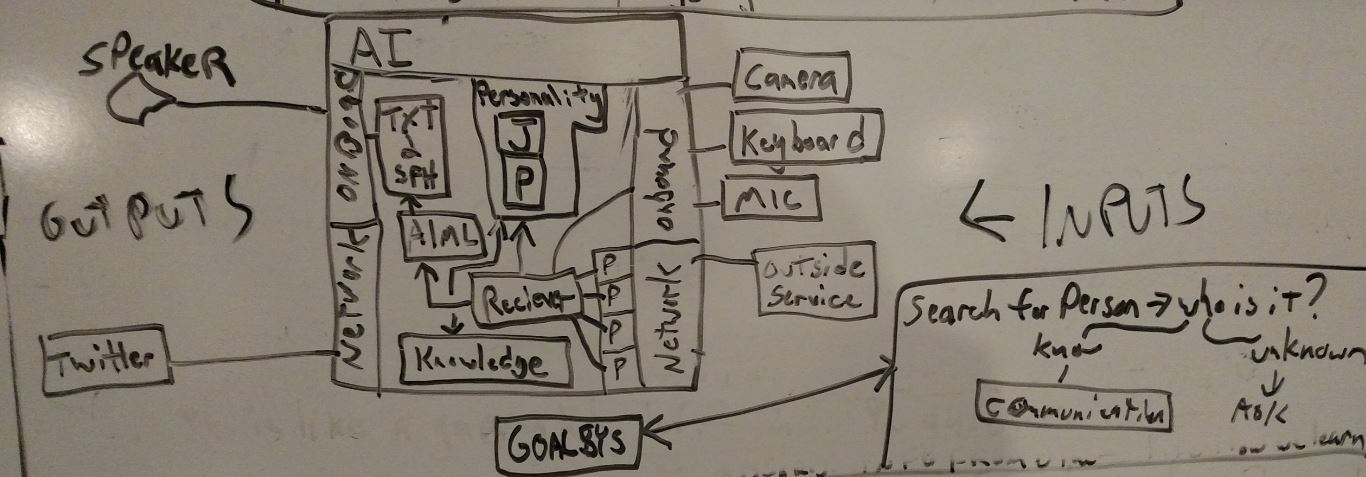 SPEAKER
OUTPUTS
Twitter
AI
ONBOARD
Network
TXT
SPH
AIML
Personality
J
P
Reciever
Knowledge
P
P
P
P
onboard
Network
Camera
Keyboard
MIC
OUTSIDE
Service
← INPUTS
GOALSYS
Search for Person → who is it?
know
unknown
communication
ASK
how we learn